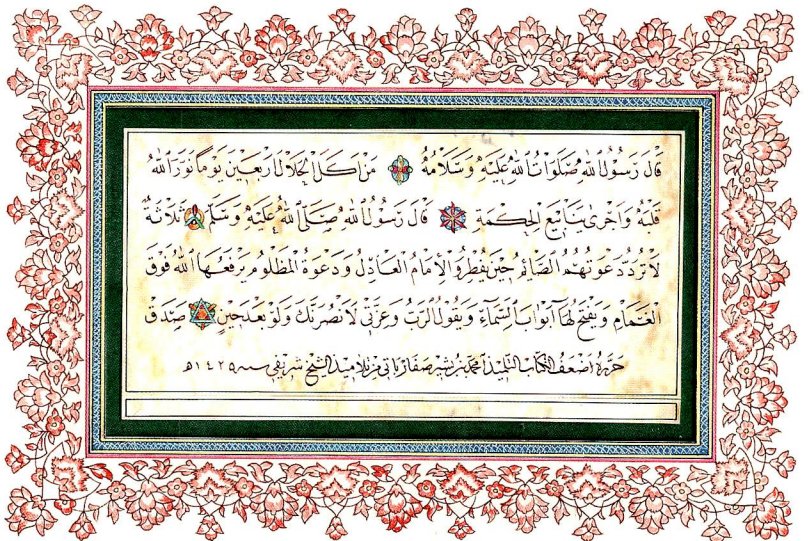 قَالَ رَسُولُ اللهِ صَلَوَاتُ اللهِ عَلَيْهِ وَسَلَامُهُ مَنْ اَكَلَ الْحَلَالَ اَرْبَعِينَ يَوْمًا نَوَّرَ اللهُ
قَلْبَهُ وَاَجْرٰى يَنَابِيعَ الْحِكْمَةِ قَالَ رَسُولُ اللهِ صَلَّى اللهُ عَلَيْهِ وَسَلَّمَ ثَلَاثَةٌ
لَا تُرَدُّ دَعْوَتُهُمُ الصَّائِمُ حِينَ يُفْطِرُ وَالْاِمَامُ الْعَادِلُ وَدَعْوَةُ الْمَظْلُومِ يَرْفَعُهَا اللهُ فَوْقَ
الْغَمَامِ وَيَفْتَحُ لَهَا اَبْوَابَ السَّمَاءِ وَيَقُولُ الرَّبُّ وَعِزَّتِي لَاَنْصُرَنَّكَ وَلَوْ بَعْدَ حِينٍ صَدَقَ
حَرَّرَهُ اَضْعَفُ الْكُتَّابِ التِّلْمِيذُ مُحَمَّد مِنْ تَلَامِيذِ الشَّيْخِ شَرِيفِي سنه ١٤٢٥ه